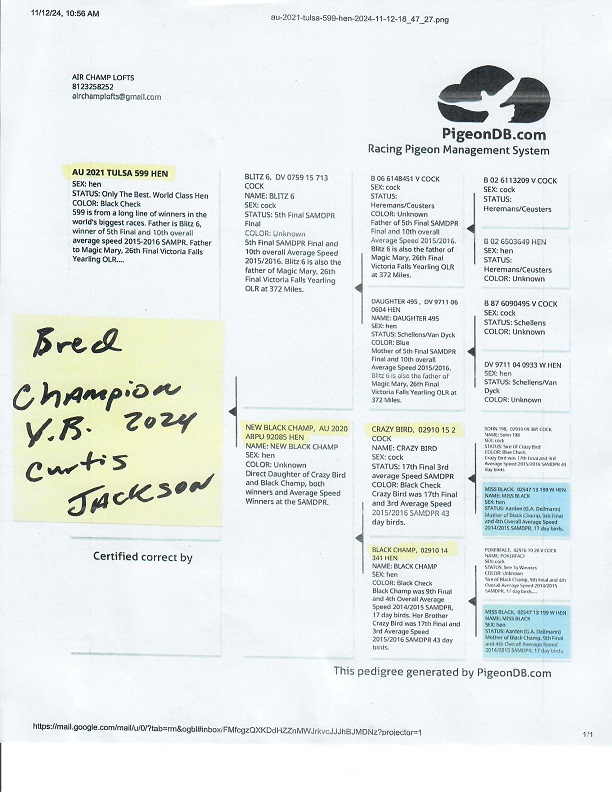 11/12/24, 10:56 AM
au-2021-tulsa-599-hen-2024-11-12-18_47_27.png
AIR CHAMP LOFTS
8123258252
airchamplofts@gmail.com
PigeonDB.com
Racing Pigeon Management System
AU 2021 TULSA 599 HEN
SEX: hen
STATUS: Only The Best. World Class Hen
COLOR: Black Check
599 is from a long line of winners in the
world's biggest races. Father is Blitz 6,
winner of 5th Final and 10th overall
average speed 2015-2016 SAMPR. Father
to Magic Mary, 26th Final Victoria Falls
Yearling OLR....
Bred
Champion
Y.B. 2024
Curtis
Jackson
Certified correct by
BLITZ 6, DV 0759 15 713
COCK
NAME: BLITZ 6
SEX: cock
STATUS: 5th Final SAMDPR
Final
COLOR: Unknown
5th Final SAMDPR Final and
10th overall Average Speed
2015/2016. Blitz 6 is also the
father of Magic Mary, 26th
Final Victoria Falls Yearling
OLR at 372 Miles.
NEW BLACK CHAMP, AU 2020
ARPU 92085 HEN
NAME: NEW BLACK CHAMP
SEX: hen
COLOR: Unknown
Direct Daughter of Crazy Bird
and Black Champ, both
winners and Average Speed
Winners at the SAMDPR.
B 06 6148451 V COCK
SEX: cock
STATUS:
Heremans/Ceusters
COLOR: Unknown
Father of 5th Final SAMDPR
Final and 10th overall
Average Speed 2015/2016.
Blitz 6 is also the father of
Magic Mary, 26th Final
Victoria Falls Yearling OLR
at 372 Miles.
DAUGHTER 495, DV 9711 06
0604 HEN
NAME: DAUGHTER 495
SEX: hen
STATUS: Schellens/Van Dyck
COLOR: Blue
Mother of 5th Final SAMDPR
Final and 10th overall
Average Speed 2015/2016.
Blitz 6 is also the father of
Magic Mary, 26th Final
Victoria Falls Yearling OLR at
372 Miles.
CRAZY BIRD, 02910 15 2
COCK
NAME: CRAZY BIRD
SEX: cock
STATUS: 17th Final 3rd
average Speed SAMDPR
COLOR: Black Check
Crazy Bird was 17th Final
and 3rd Average Speed
2015/2016 SAMDPR 43
day birds.
BLACK CHAMP, 02910 14
341 HEN
NAME: BLACK CHAMP
SEX: hen
COLOR: Black Check
Black Champ was 9th Final
and 4th Overall Average
Speed 2014/2015 SAMDPR,
17 day birds. Her Brother
Crazy Bird was 17th Final and
3rd Average Speed
2015/2016 SAMDPR 43 day
birds.
B 02 6113209 V COCK
SEX: cock
STATUS:
Heremans/Ceusters
B 02 6503649 HEN
SEX: hen
STATUS:
Heremans/Ceusters
COLOR: Unknown
B 87 6090495 V COCK
SEX: cock
STATUS: Schellens
COLOR: Unknown
DV 9711 04 0933 W HEN
SEX: hen
STATUS: Schellens/Van
Dyck
COLOR: Unknown
SOHN 198, 02910 09 381 COCK
NAME: Sohn 198
SEX: cock
STATUS: Sire Of Crazy Bird
COLOR: Blue Check
Crazy Bird was 17th Final and 3rd
Average Speed 2015/2016 SAMDPR 43
day birds.
MISS BLACK, 02547 13 199 W HEN
NAME: MISS BLACK
SEX: hen
STATUS: Aarden (G.A. Dellmann)
Mother of Black Champ, 9th Final
and 4th Overall Average Speed
2014/2015 SAMDPR, 17 day birds.
POKERFACE, 02910 10 26 V COCK
NAME: POKERFACE
SEX: cock
STATUS: Sire To Winners
COLOR: Unknown
Sire of Black Champ, 9th Final and 4th
Overall Average Speed 2014/2015
SAMDPR, 17 day birds....
MISS BLACK, 02547 13 199 W HEN
NAME: MISS BLACK
SEX: hen
STATUS: Aarden (G.A. Dellmann)
Mother of Black Champ, 9th Final
and 4th Overall Average Speed
2014/2015 SAMDPR, 17 day birds.
This pedigree generated by PigeonDB.com
https://mail.google.com/mail/u/0/?tab=rm&ogbl#inbox/FMfcgzQXKDdHZZnMWJrkvcJJJhBJMDNz?projector=1
1/1